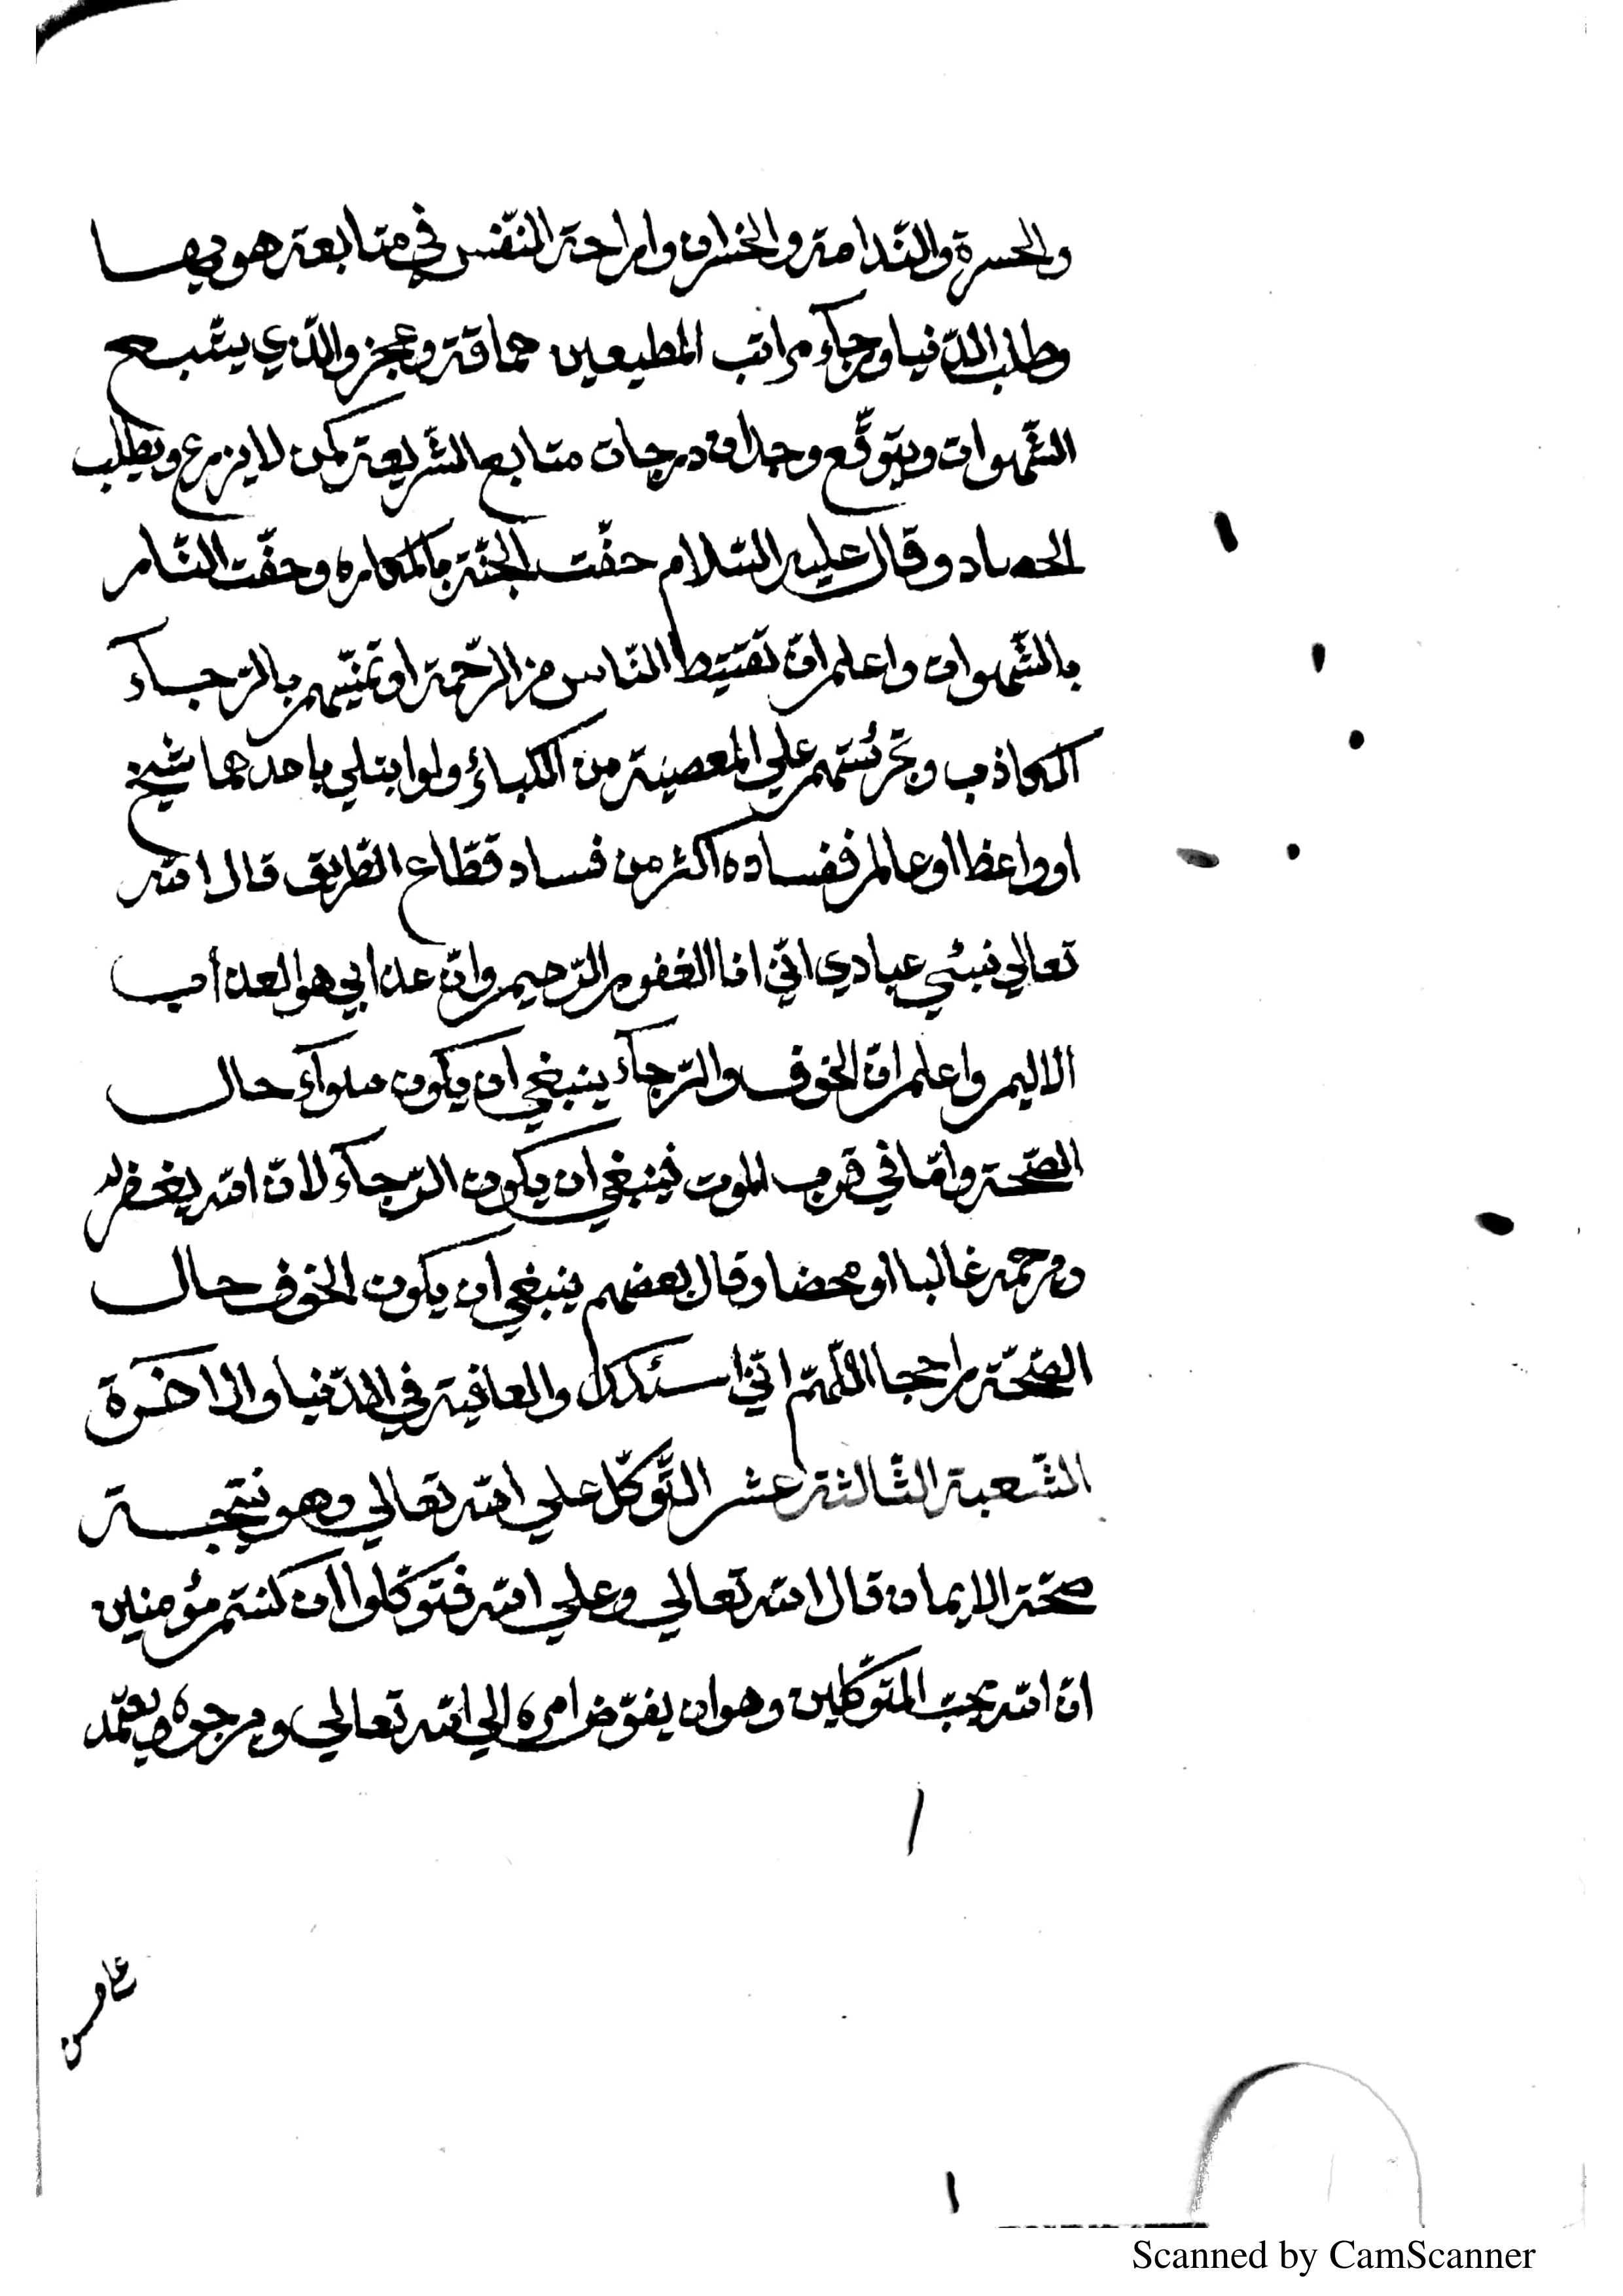 والحسرة والنّدامة والخسران واراحة النّفس في متابعة هويها
وطلب الدّنيا ورجآء مراتب المطيعين حماقة وعجز والّذي يتّبع
الشّهوات ويتوقّع وجدان درجات متابع الشّريعة كمن لا يزرع ويطلب
الحصاد وقال عليه السّلام حفّت الجنّة بالمكاره وحفّت النّار
بالشّهوات واعلم انّ تقنيط النّاس من الرّحمة او تمنّيهم بالرّجآء
الكاذب وتجرئتهم علي المعصية من الكبائر ولو ابتلي باحدهما شيخ
او واعظا او عالم ففساده اكثر من فساد قطّاع الطّريق قال الله
تعالي نبئي عبادي انّي انا الغفور الرّحيم وانّ عذابي هو العذاب
الاليم واعلم انّ الخوف والرّجآء ينبغي ان يكون سوآء حال
الصّحّة وامّا في قرب الموت فينبغي ان يكون الرّجآء لانّ الله يغفر له
ويرحمه غالبا او محضا وقال بعضهم ينبغي ان يكون الخوف حال
الصّحّة راجحا اللّهمّ انّي اسئلك والعافية في الدّنيا والاخرة
الشّعبة الثّالثة عشر التّوكّل علي الله تعالي وهو نتيجة
صحّة الايمان قال الله تعالي وعلي الله فتوكّلوا ان كنتم مؤمنين
انّ الله يحبّ المتوكّلين وهو ان يفوّض امره الي الله تعالي ويرجوه ويعتمد
Scanned by CamScanner